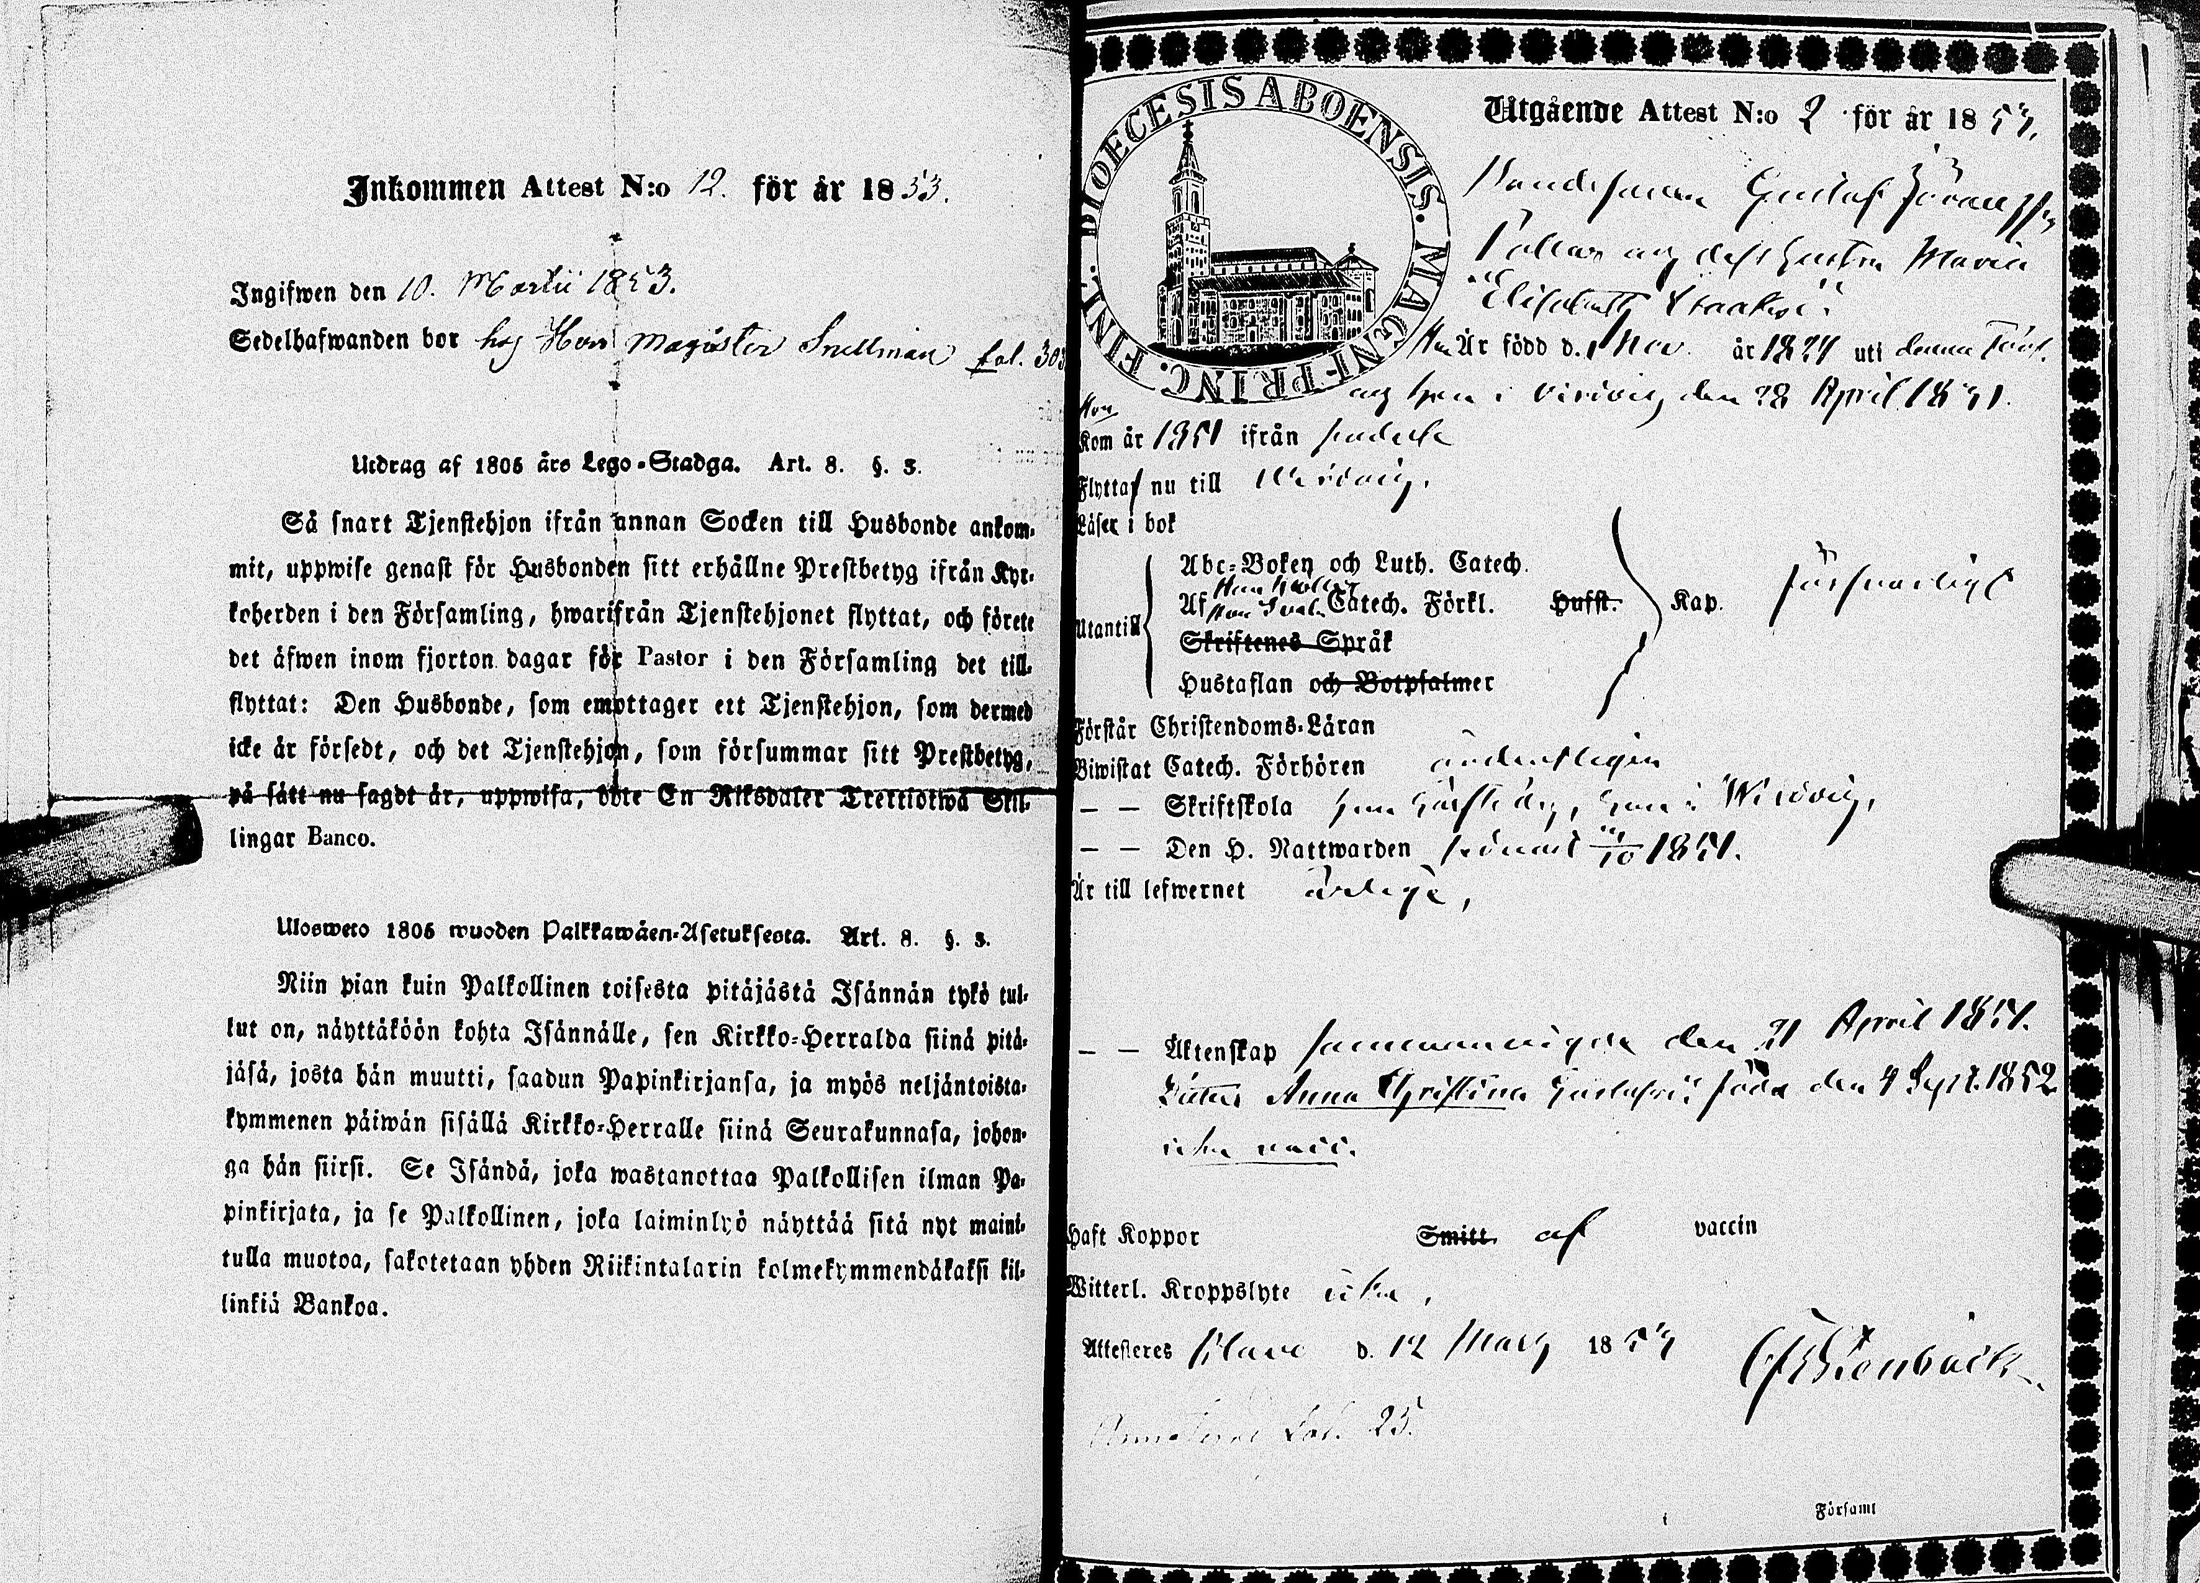 Inkommen Attest N:o 12. för år 1853.
Ingifwen den 10. Martii 1853.
Sedelhafwanden bor hos Herr Magister Snellman fol. 303
Utdrag af 1805 års Lego-Stadga. Art. 8. §. 3.
Så snart Tjenstehjon ifrån annan Socken till Husbonde ankom-
mit, uppwise genast för Husbonden sitt erhållne Prestbetyg ifrån Kyr-
koherden i den Församling, hwarifrån Tjenstehjonet flyttat, och förete
det äfwen inom fjorton dagar för Pastor i den Församling det till-
flyttat: Den Husbonde, som emottager ett Tjenstehjon, som dermed
icke är försedt, och det Tjenstehjon, som försummar sitt Prestbetyg,
på sätt nu sagdt är, uppwisa, böte En Riksdaler Trettiotwå Skil-
lingar Banco.
Ulosweto 1805 wuoden Palkkawäen-Asetuksesta. Art. 8. §. 3.
Niin pian kuin Palkollinen toisesta pitäjästä Isännän tykö tul-
lut on, näyttäköön kohta Isännälle, sen Kirkko-Herralda siinä pitä-
jäsä, josta hän muutti, saadun Papinkirjansa, ja myös neljäntoista-
kymmenen päiwän sisällä Kirkko-Herralle siinä Seurakunnasa, johon-
ga hän siirsi. Se Isändä, joka wastanottaa Palkollisen ilman Pa-
pinkirjata, ja se Palkollinen, joka laiminlyö näyttää sitä nyt maini-
tulla muotoa, sakotetaan yhden Riikintalarin kolmekymmendäkaksi kil-
linkiä Bankoa.
DIOECESIS ABOENSIS. MAGNI PRINC. FINL.
Utgående Attest N:o 2 för år 1854.
Bondesonen Gustaf
och dess hustru Maria
Elisabeth
Han Är född d. 1 Nov. år 1824 uti denna Förs.
och hon i Wirdois den 28 April 1831.
Hon
Kom år 1851 ifrån
Flytta nu till Wirdois.
Läser i bok
Utantill
Abc-Boken och Luth. Catech.
Af Catech. Förkl. Husst. Kap. försvarligt
Skriftenes Språk
Hustaflan och Botpsalmer
Förstår Christendoms-Läran
Biwistat Catech. Förhören ordentligen
— — Skriftskola hon i Wirdois,
— — Den H. Nattwarden 1851.
Är till lefwernet ärliga,
— — Äktenskap sammanvigda den 21 April 1851.
Dotter Anna Christina född den 4 Sept. 1852
icke vacc.
Haft Koppor Smitt. af vaccin
Witterl. Kroppslyte icke,
Attesteres d. 12 Mars 1854
Fol. 25.
Församl